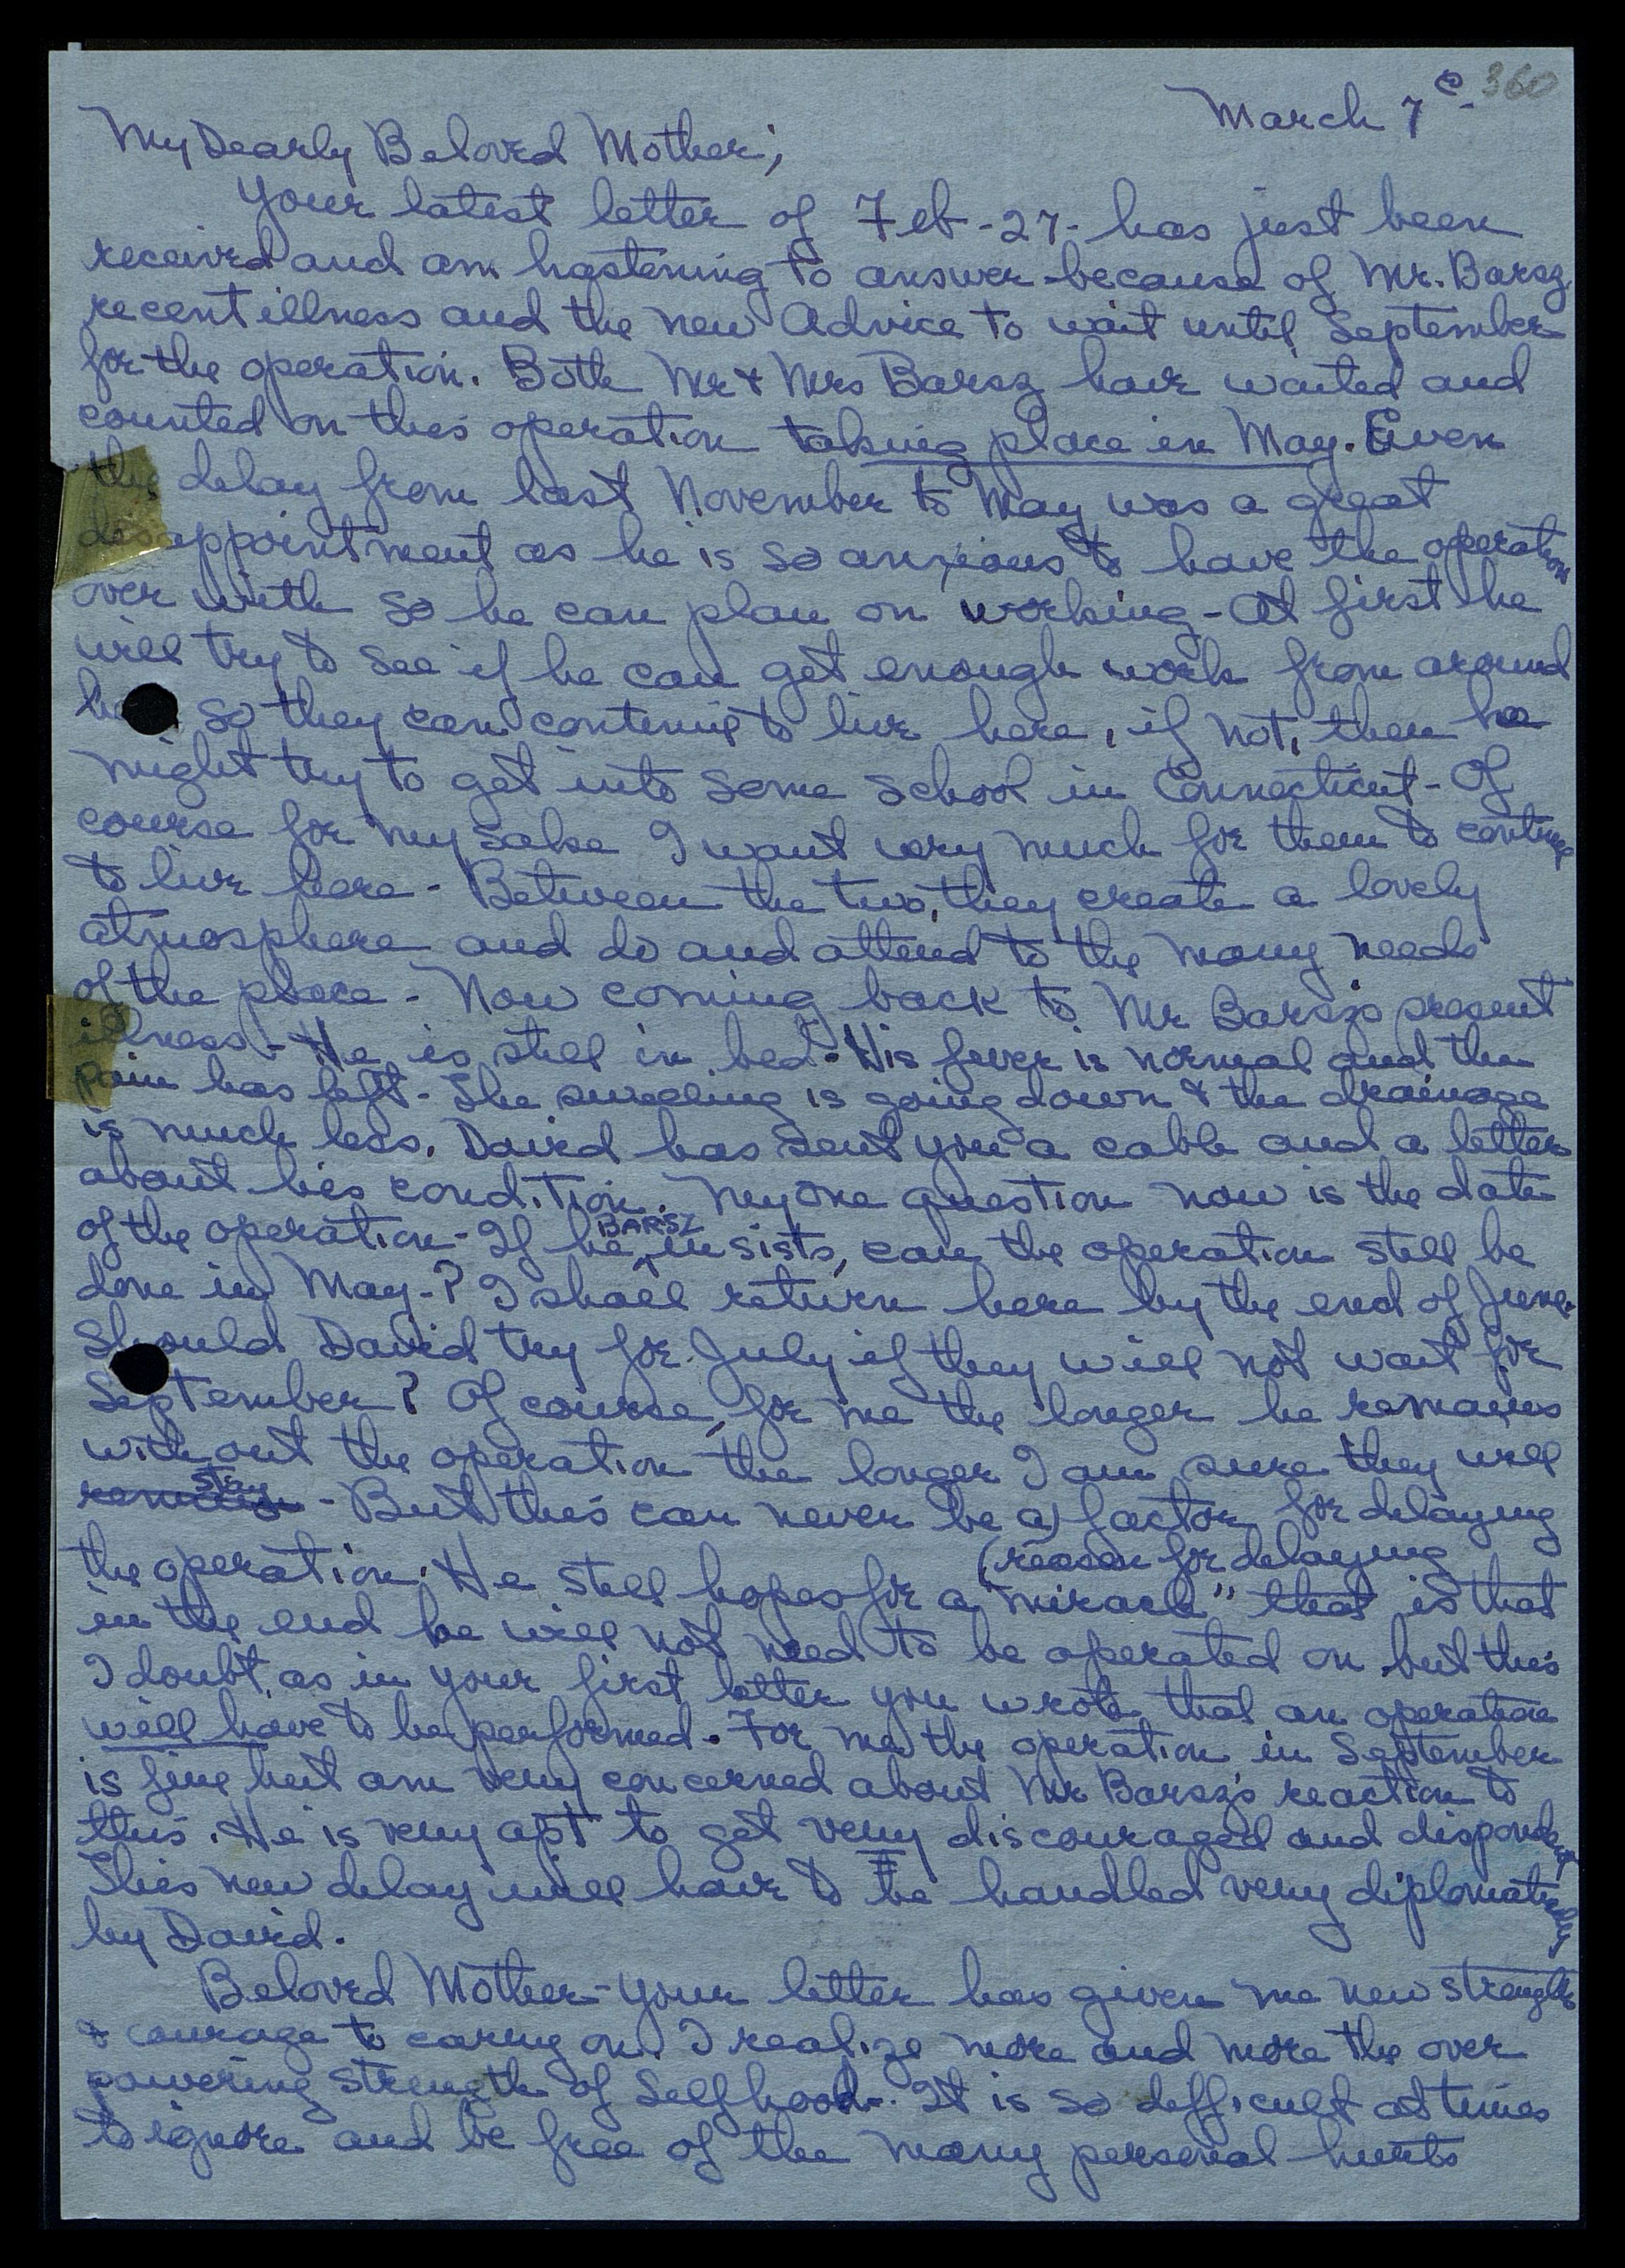 360
March 7e-
My Dearly Beloved Mother;
Your latest letter of Feb-27- has just been
received and am hastening to answer because of Mr. Barsz
recent illness and the new Advice to wait until September
for the operation. Both Mr & Mrs Barsz have waited and
counted on this operation taking place in May. Even
the delay from last November to May was a great
disappointment as he is so anxious to have the operation
over with so he can plan on working - At first he
will try to see if he can get enough work from around
so they can continue to live here, if not, then he
might try to get into some school in Connecticut - Of
course for my sake I want very much for them to continue
to live here - Between the two, they create a lovely
atmosphere and do and attend to the many needs
of the place - Now coming back to Mr Barsz's present
illness - He is still in bed. His fever is normal and the
pain has left - The swelling is going down & the drainage
is much less. David has sent you a cable and a letter
about his condition. My one question now is the date
of the operation - If he BARSZ insists, can the operation still be
done in May-? I shall return here by the end of June.
Should David try for July if they will not wait for
September? Of course, for me the longer he remains
without the operation the longer I am sure they will
stay - But this can never be a factor for delaying
(reason for delaying
the operation. He still hopes for a "miracle" that is that
in the end he will not need to be operated on but this
I doubt, as in your first letter you wrote that an operation
will have to be performed. For me the operation in September
is fine but am very concerned about Mr Barsz's reaction to
this. He is very apt to get very discouraged and dispondent
This new delay will have to be handled very diplomatically
by David.
Beloved Mother - your letter has given me new strength
& courage to carry on. I realize more and more the over
powering strength of Selfhood-. It is so difficult at times
to ignore and be free of the many personal hurts